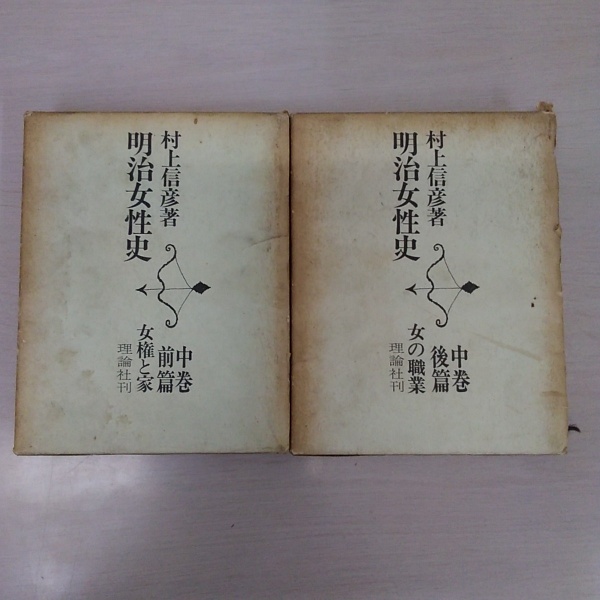 村上信彦著
明治女性史
中巻
前篇
女権と家
理論社刊
村上信彦著
明治女性史
中巻
後篇
女の職業
理論社刊